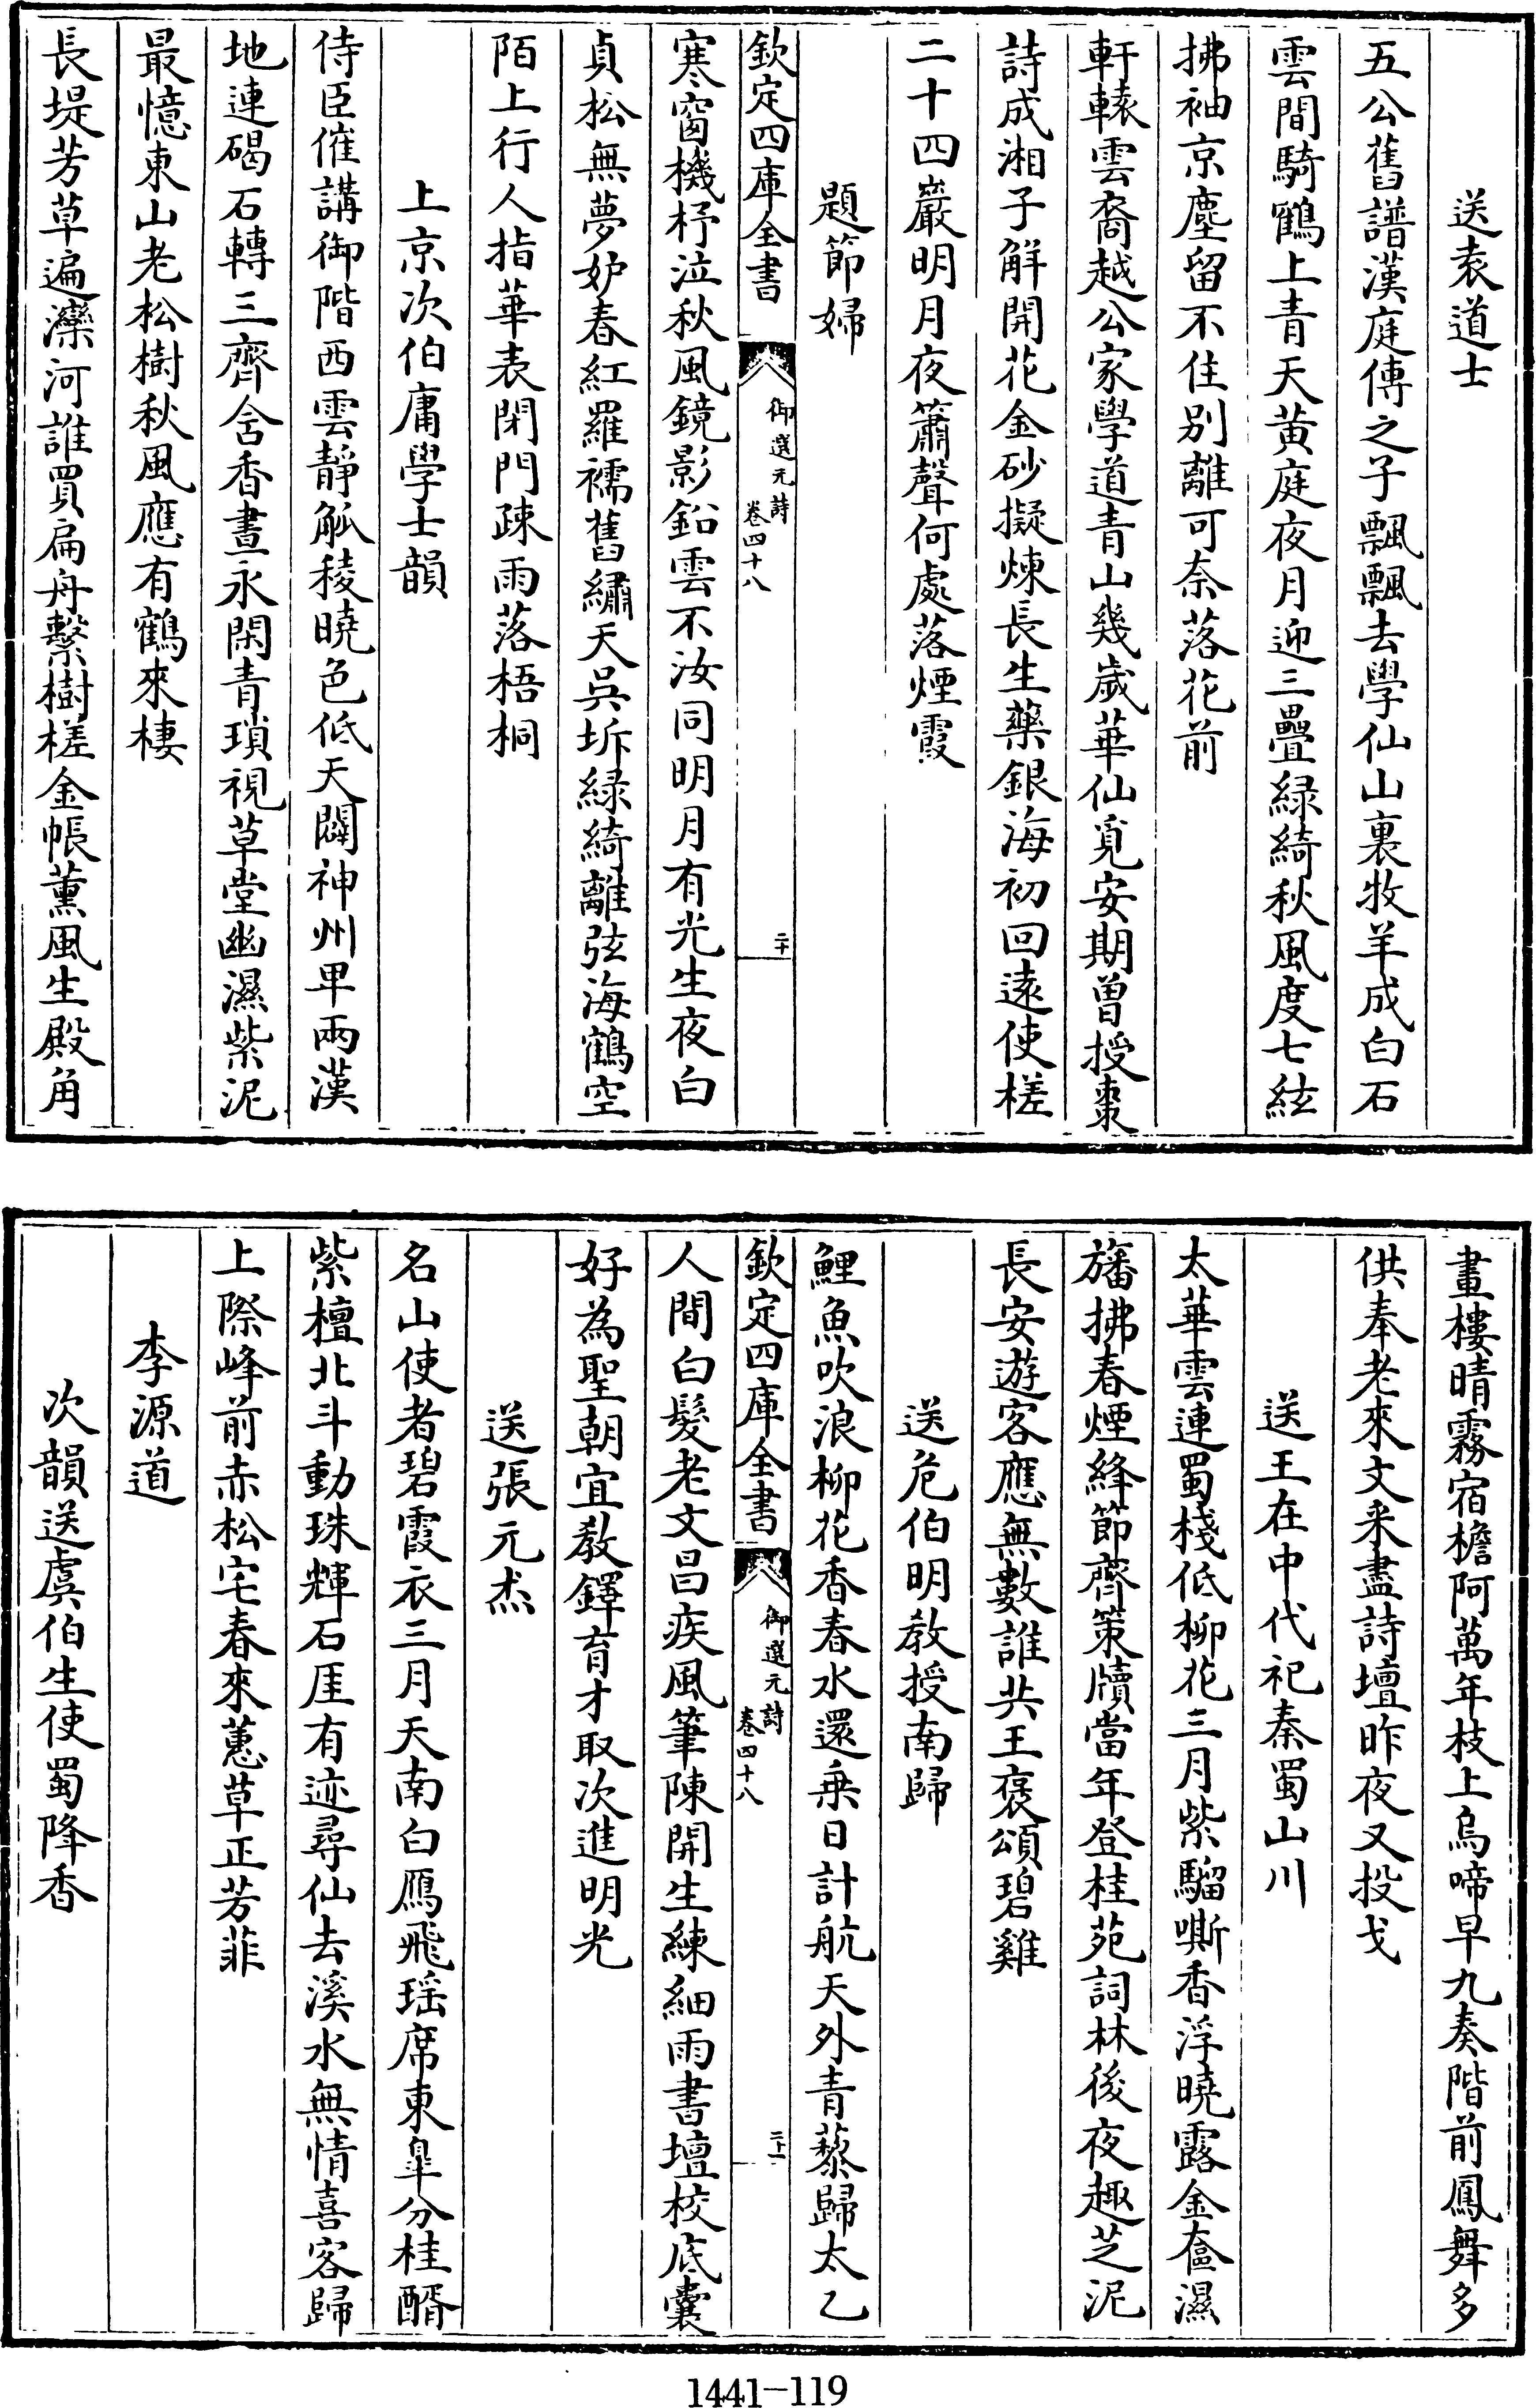 送袁道士
五公舊譜漢庭傳之子飄飄去學仙山裏牧羊成白石
雲間騎鶴上青天黄庭夜月迎三疊緑綺秋風度七絃
拂袖京塵留不住别離可奈落花前
軒轅雲裔越公家學道青山幾歲華仙覓安期曽授棗
詩成湘子解開花金砂擬煉長生藥銀海初回遠使槎
二十四巖明月夜簫聲何處落煙霞
題節婦
欽定四庫全書
御選元詩
卷四十八
二十
寒窗機杼泣秋風鏡影鉛雲不汝同明月有光生夜白
貞松無夢妒春紅羅襦舊繡天吳坼緑綺離弦海鶴空
陌上行人指華表閉門疎雨落梧桐
上京次伯庸學士韻
侍臣催講御階西雲靜觚稜曉色低天闢神州甲兩漢
地連碣石轉三齊含香晝永閑青瑣視草堂幽濕紫泥
最憶東山老松樹秋風應有鶴來棲
長堤芳草遍灤河誰買扁舟繫樹槎金帳薰風生殿角
畫樓晴霧宿檐阿萬年枝上烏啼早九奏階前鳳舞多
供奉老來文采盡詩壇昨夜又投戈
送王在中代祀秦蜀山川
太華雲連蜀棧低柳花三月紫騮嘶香浮曉露金奩濕
旛拂春煙絳節齊策牘當年登桂苑詞林後夜趣芝泥
長安遊客應無數誰共王褒頌碧雞
送危伯明教授南歸
鯉魚吹浪柳花香春水還乗日計航天外青藜歸太乙
欽定四庫全書
御選元詩
卷四十八
二十一
人間白髮老文昌疾風筆陳開生練細雨書壇校底囊
好為聖朝宜教鐸育才取次進明光
送張元杰
名山使者碧霞衣三月天南白鴈飛瑶席東臯分桂醑
紫檀北斗動珠輝石厓有迹尋仙去溪水無情喜客歸
上際峰前赤松宅春來蕙草正芳菲
李源道
次韻送虞伯生使蜀降香
1441—119